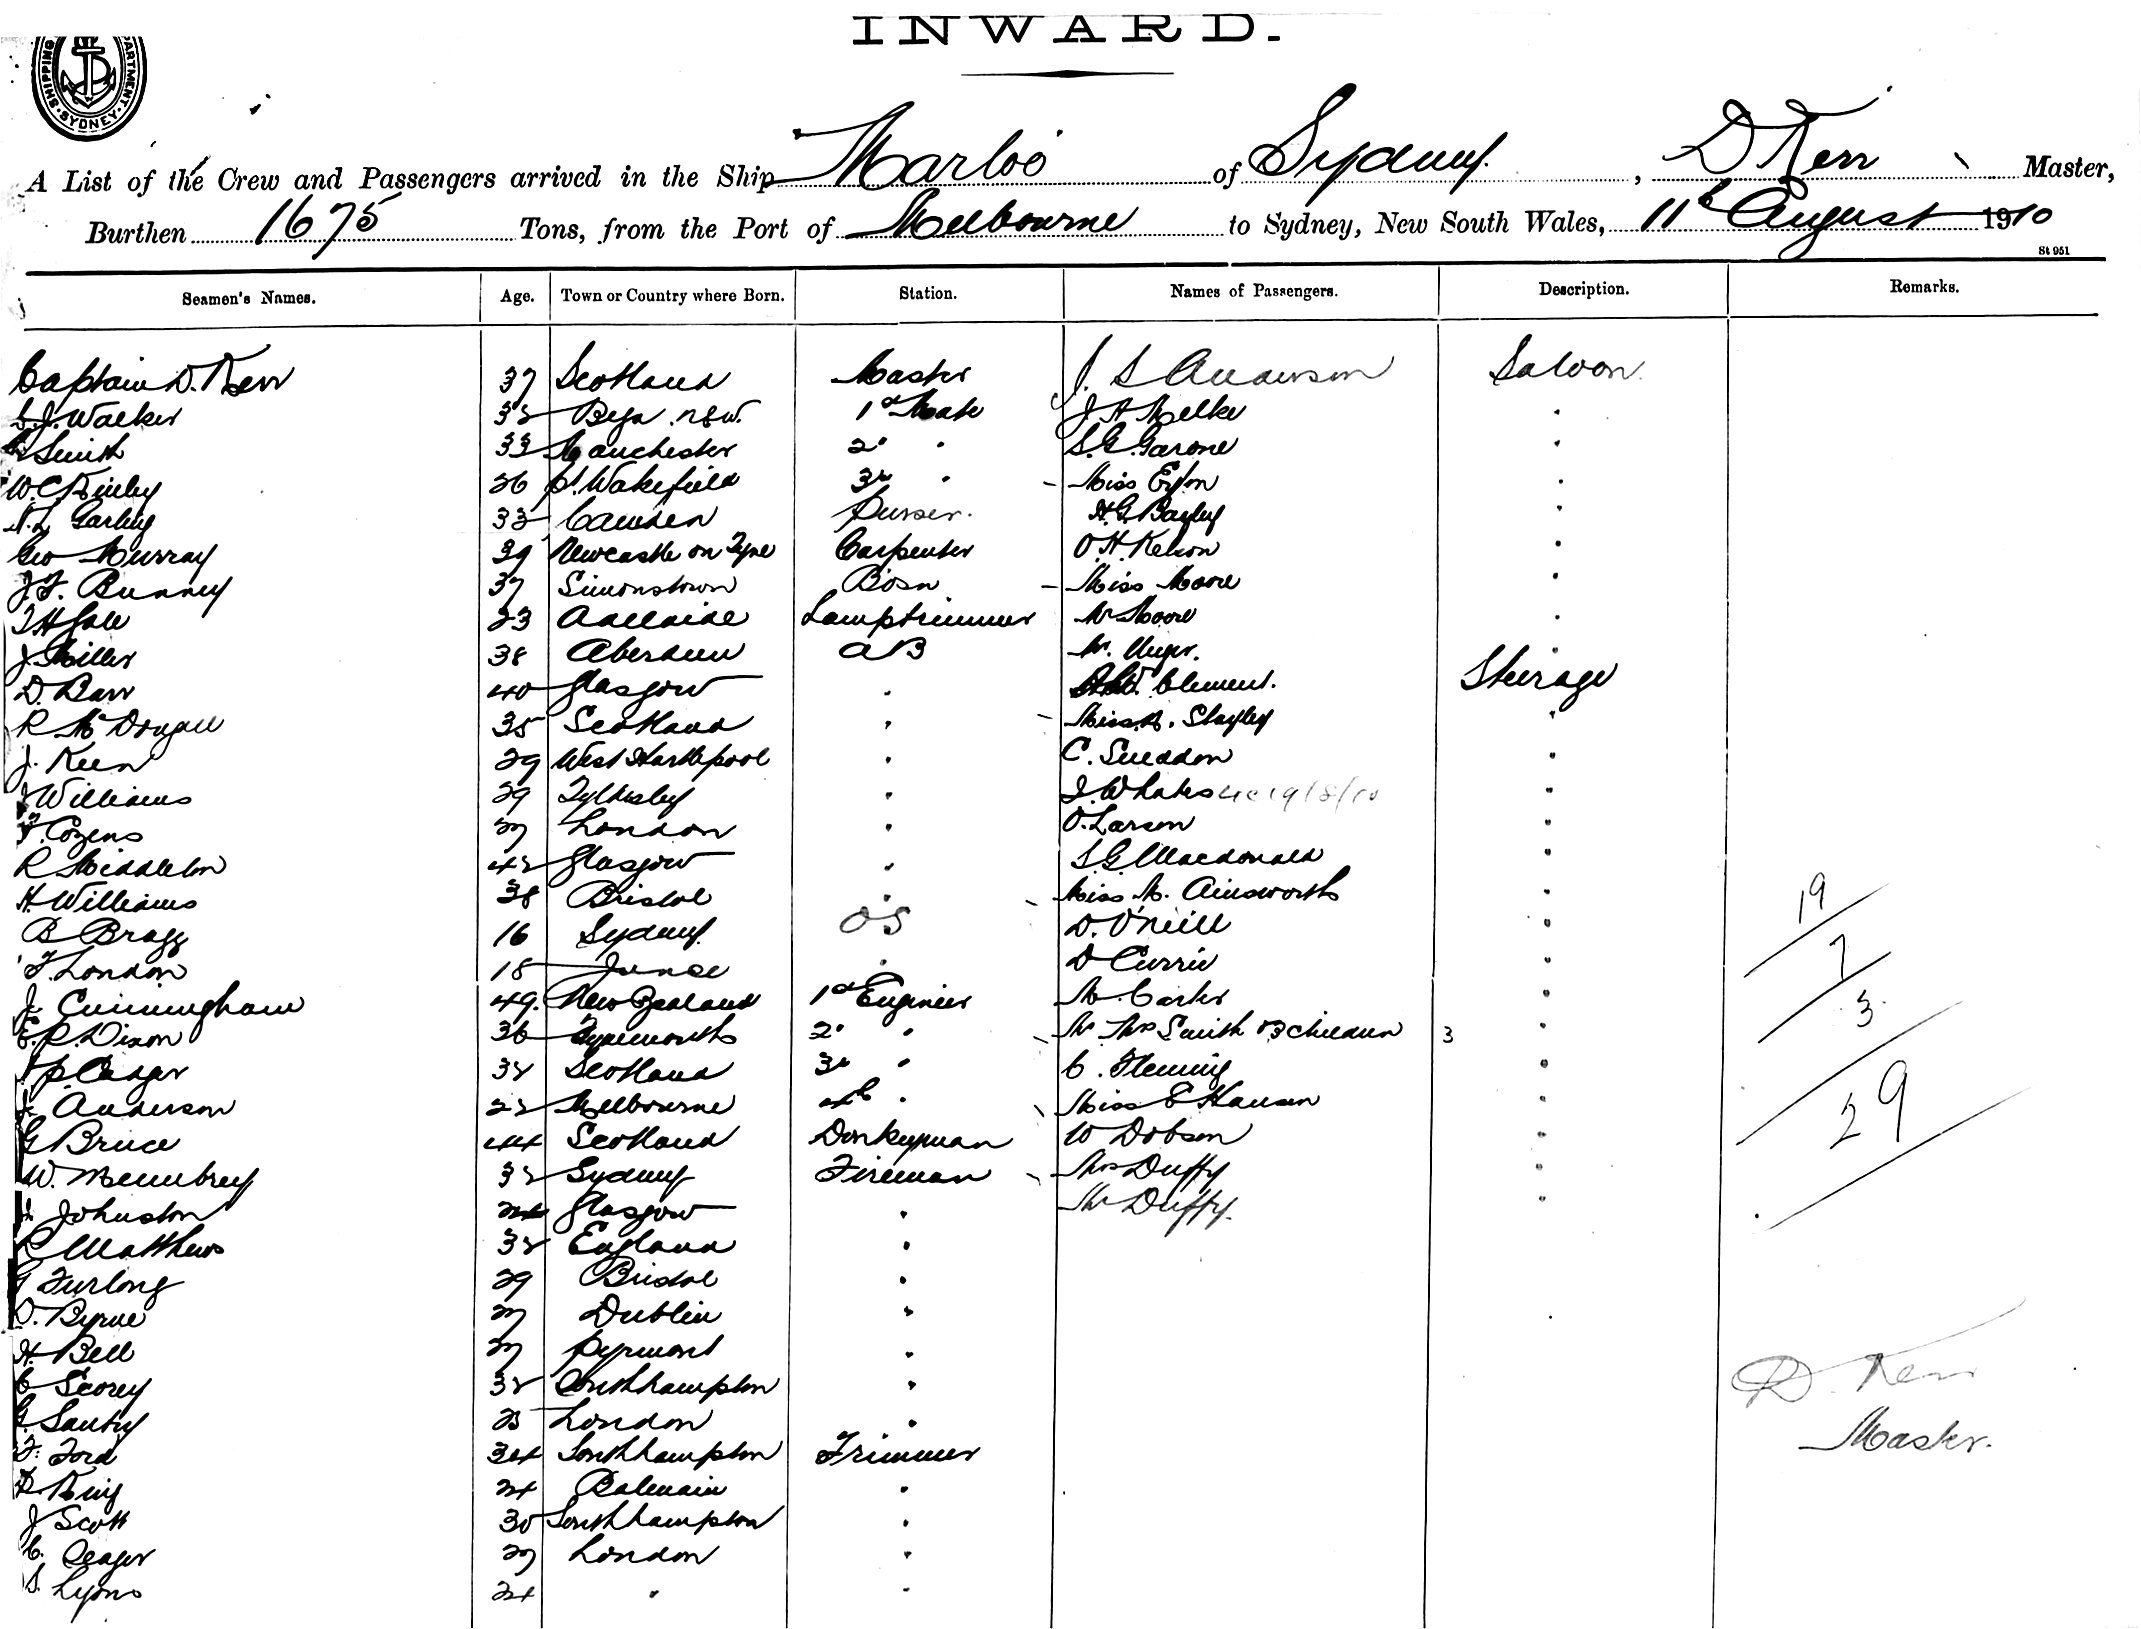 INWARD.
SHIPPING DEPARTMENT SYDNEY
A List of the Crew and Passengers arrived in the Ship Marloo of Sydney, D Kerr Master,
Burthen 1675 Tons, from the Port of Melbourne to Sydney, New South Wales, 11th August 1910
St 951
Seamen's Names. Age. Town or Country where Born. Station. Names of Passengers. Description. Remarks.
Captain D. Kerr 37 Scotland Master J. S Anderson Saloon.
Walker 32 Bega. NSW. 1st Mate J A Melke "
Smith 33 Manchester 2d " S. G. Garone "
W. C Kinley 26 Pt. Wakefield 3rd " - Miss "
Garling 33 Camden Purser. H. G. Bayley "
Geo Murray 39 Newcastle on Tyne Carpenter O. H. Kelson "
J. F. Bunney 37 Simonstown Bosn - Miss Moore "
T H Gale 23 Adelaide Lamptrimmer Mr Moore "
J. Miller 38 Aberdeen AB Mr. "
D. Barr 40 Glasgow " Clement. Steerage
R McDougall 35 Scotland " - Miss M. Slayley "
J. Keen 29 West Hartlepool " C. Sneddon "
J Williams 29 Tyldesley " 19/8/10 "
F. Cozens 27 London " O. Larsen "
R Middleton 42 Glasgow " S. G. Macdonald "
H. Williams 38 Bristol " - Miss M. Ainsworth " 19
B Bragg 16 Sydney. OS D. O'Neill "
F. London 18 Junee " D Currie " 7
J. Cunningham 49. New Zealand 1st Engineer M. Carter " 3
E. R. Dixon 36 Tynemouth 2d " - Mr Mrs Smith & 3 children 3 "
32 Scotland 3rd " C. Fleming "
J. Anderson 22 Melbourne 4th " - Miss E Hansen " 29
G Bruce 44 Scotland Donkeyman W Dobson "
W. Membrey 32 Sydney Fireman - Mrs Duffy "
J. Johnston 24 Glasgow " Mr Duffy. "
R Matthews 32 England "
G Furlong 29 Bristol "
D. Byrne 27 Dublin "
H. Bell 27 Pyrmont "
C Scorey 32 Southhampton " D. Kerr
G. Santry 25 London "
F. Ford 34 Southhampton Trimmer Master.
King 24 Balmain "
J Scott 30 Southhampton "
C. Seager 27 London "
S. Lyons 24 " "